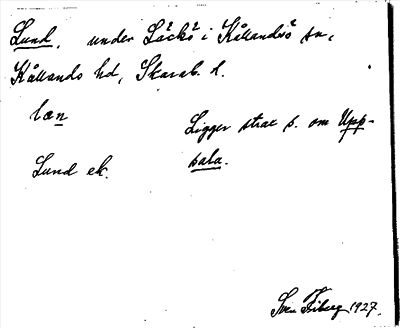 Lund, under Läckö i Kållandsö sn,
Kållands hd, Skarab. l.
læn
Ligger strax s. om Upp-
sala.
Lund ek.
Sven Fiberg 1927.